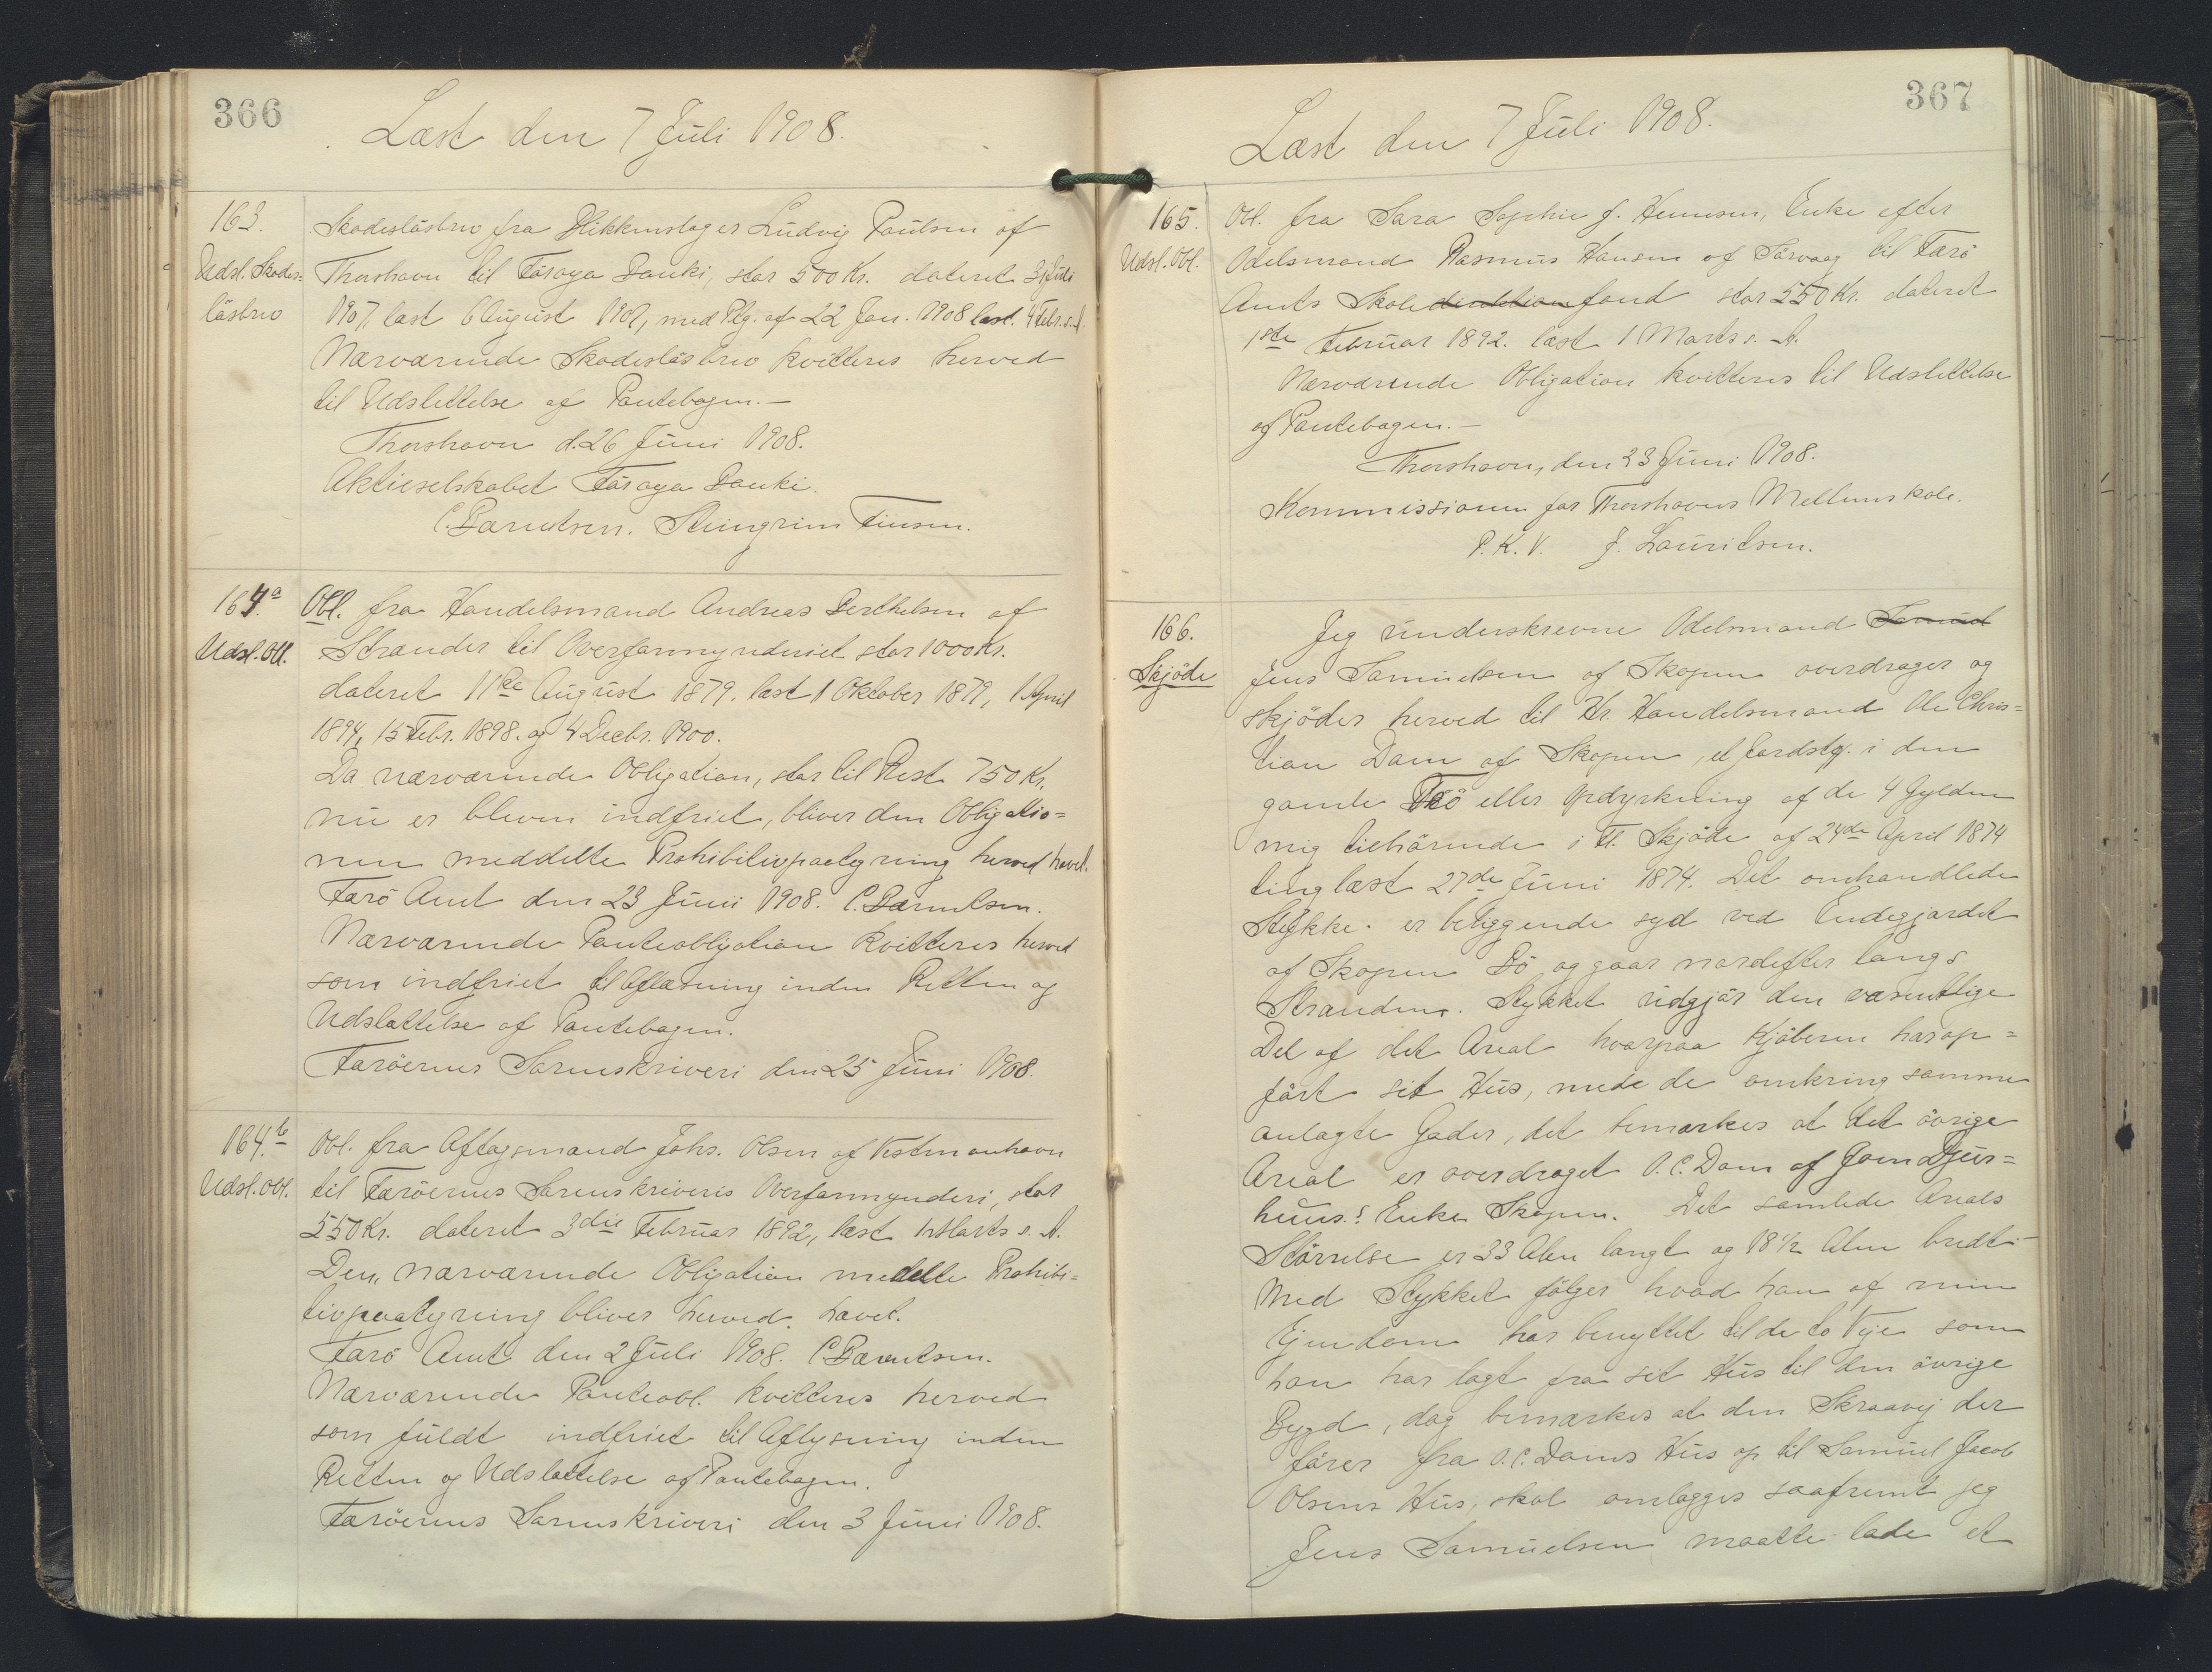 366
Læst den 7 Juli 1908.
163.
Udsl. Skades=
løsbrev
Skadesløsbrev fra Blikkenslager Ludvig Poulsen af
Thorshavn til Føroya Banki, stor 500 Kr. dateret 31 Juli
1907, læst 6 August 1907, med Plg. af 22 Jan. 1908 læst. 4 Febr. s. A.
Nærværende Skadesløsbrev kvitteres herved
til Udslettelse af Pantebogen.—
Thorshavn d. 26 Juni 1908.
Aktieselskabet Føroya Banki.
C. Bærentsen. Steingrim Finsen.
164a
Udsl. Obl.
Obl. fra Handelsmand Andreas Berthelsen af
Strander til Overformynderiet stor 1000 Kr.
dateret 11te August 1879. læst 1 Oktober 1879, 1 April
1894, 15 Febr. 1898. og 4 Decbr. 1900.
Da nærværende Obligation, stor til Rest 750 Kr.
nu er bleven indfriet, bliver den Obligatio=
nen meddelte Prohibitivpaategning herved hævet.
Færø Amt den 23 Juni 1908. C. Bærentsen.
Nærværende Panteobligation kvitteres herved
som indfriet til Aflæsning inden Retten og
Udslettelse af Pantebogen.
Færøernes Sorenskriveri den 25 Juni 1908.
164.b
Udsl. Obl.
Obl. fra Aftagsmand Johs. Olsen af Vestmanhavn
til Færøernes Sorenskriveris Overformynderi, stor
550 Kr. dateret 3die Februar 1892, læst 1 Marts s. A.
Den, nærværende Obligation meddelte Prohibi=
tivpaategning bliver herved hævet.
Færø Amt den 2 Juli 1908. C. Bærentsen.
Nærværende Panteobl. kvitteres herved
som fuldt indfriet til Aflysning inden
Retten og Udslettelse af Pantebogen.
Færøernes Sorenskriveri den 3 Juni 1908.
367
Læst den 7 Juli 1908.
165.
Udsl. Obl.
Obl. fra Sara Sophie J. Hennesen, Enke efter
Odelsmand Rasmus Hansen af Sørvaag til Færø
Amts Skoledirektionfond stor 550 Kr. dateret
1ste Februar 1892. læst 1 Marts s. A.
Nærværende Obligation kvitteres til Udslettelse
af Pantebogen.—
Thorshavn, den 23 Juni 1908.
Kommissionen for Thorshavns Mellemskole.
P. K. V. J. Lauritsen.
166.
Skjøde
Jeg underskrevne Odelsmand Samuel
Jens Samuelsen af Skopun overdrager og
skjøder herved til Hr. Handelsmand Ole Chris=
tian Dam af Skopun, et Jordsty. i den
gamle Trø eller Opdyrkning af de 4 Gylden
mig tilhørende i Fl. Skjøde af 24de April 1874
tinglæst 27de Juni 1874. Det omhandlede
Stykke er beliggende syd ved Endegjærdet
af Skopun Bø og gaar nordefter langs
Stranden. Stykket udgjør den væsentlige
Del af det Areal hvorpaa Kjøberen har op=
ført sit Hus, mede de omkring samme
anlagte Gader, det bemærkes at det øvrige
Areal er overdraget O. C. Dam af Joen Djur=
huus's Enke Skopun. Det samlede Areals
Størrelse er 33 Alen langt og 18 1/2 Alen bredt
Med Stykket følger hvad han af min
Ejendom har benyttet til de to Veje som
han har lagt fra sit Hus til den øvrige
Bygd, dog bemærkes at den Skraavej der
fører fra O. C. Dams Hus op til Samuel Jacob
Olsens Hus, skal omlægges saafremt jeg
Jens Samuelsen maatte lade et